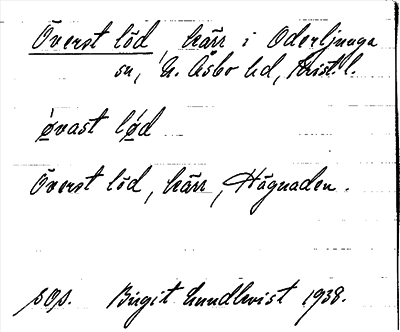 Överst löd, kärr i Oderljunga
sn, N. Åsbo hd, Krist. l.
øvast lød
Överst löd, kärr, Hägnaden.
sop. Birgit Lundkvist 1938.